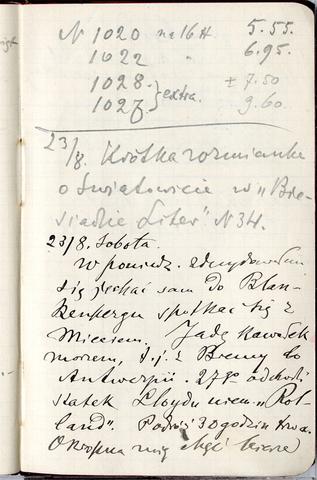 N 1020 na 16 H. 5.55.
1022 " 6.95.
1028. ± 7.50
1027 } extra. 9.60
23/8. Krótka wzmianka
o Światowicie w „Bie-
siadzie Liter" N 34.
23/8. Sobota.
W poniedz. zdecydowałem
się jechać sam do Blan-
kenbergu spotkać się z
Mieciem. Jadę kawałek
morzem, t.j. z Bremy do
Antwerpii. 27go odchodzi
statek Lloydu niem. „Rol-
land". Podróż 30 godzin trwa.
Okropna mię chęć bierze